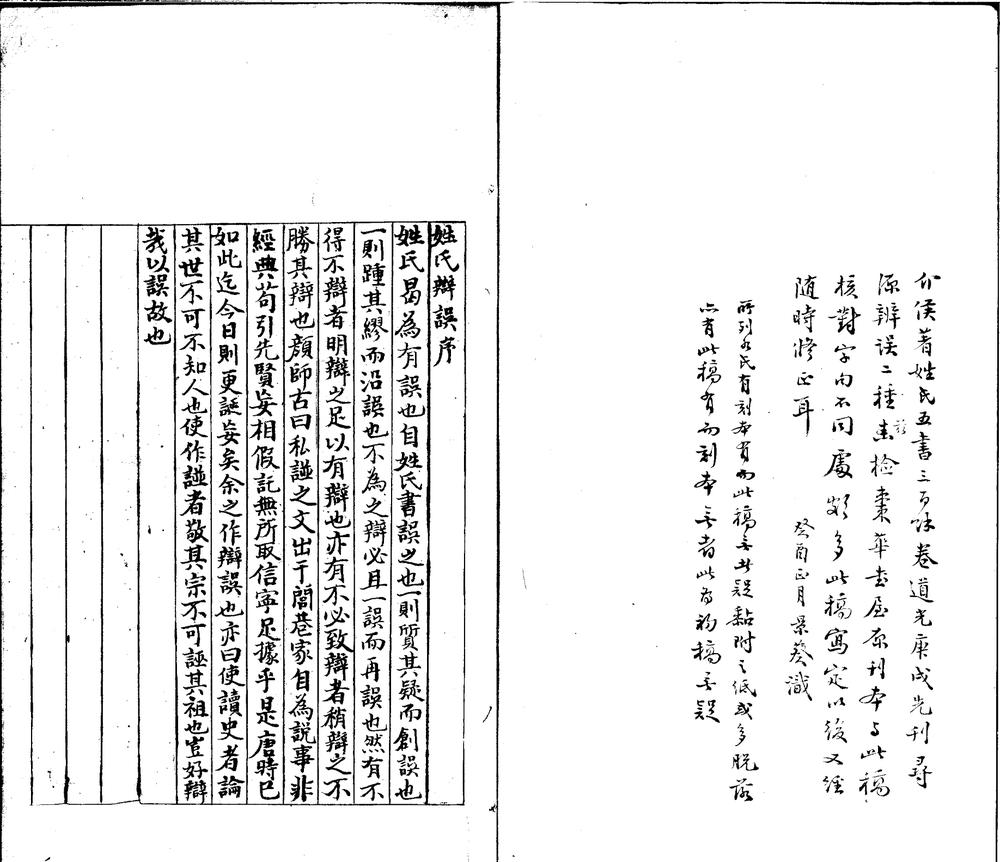 介侯著姓氏五書三百餘卷道光庚戌先刊尋
源辨误二種茲检棗華書屋原刊本与此稿
核對字句不同處頗多此稿寫定以後又經
随時修正耳
癸酉正月景葵識
所列各氏有刻本有而此稿無者疑黏附之纸或多脱落
亦有此稿有而刻本無者此为初稿無疑
姓氏辯誤序
姓氏曷為有誤也自姓氏書誤之也一則質其疑而創誤也
一則踵其繆而沿誤也不為之辯必且一誤而再誤也然有不
得不辯者明辯之足以有辯也亦有不必致辯者稍辯之不
勝其辯也顔師古曰私諩之文出于閭巷家自為説事非
經典苟引先賢妄相假託無所取信寧足據乎是唐時已
如此迄今日則更誕妄矣余之作辯誤也亦曰使讀史者論
其世不可不知人也使作諩者敬其宗不可誣其祖也豈好辯
哉以誤故也